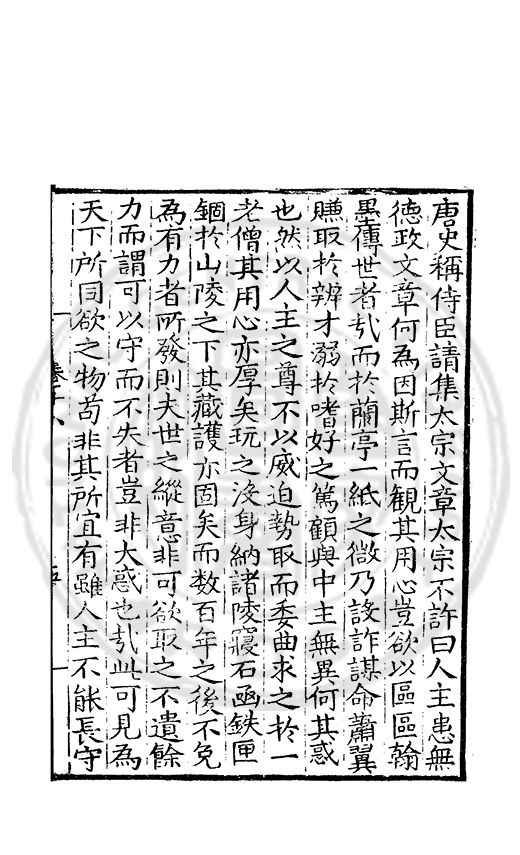 唐史稱侍臣請集太宗文章太宗不許曰人主患無
德政文章何為因斯言而觀其用心豈欲以區區翰
墨傳世者㢤而於蘭亭一紙之微乃設詐謀命蕭翼
賺取於辨才溺於嗜好之篤顧與中主無異何其惑
也然以人主之尊不以威迫勢取而委曲求之於一
老僧其用心亦厚矣玩之沒身納諸陵寢石函鉄匣
錮於山陵之下其藏護亦固矣而数百年之後不免
為有力者所發則夫世之縱意非可欲取之不遺餘
力而謂可以守而不失者豈非大惑也㢤此可見為
天下所同欲之物苟非其所宜有雖人主不能長守
卷十八